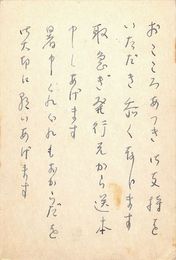 おこころあつき御支持を
いただき忝く存じます
取急ぎ発行元から送本
申しあげます
暑中くれぐれもおからだを
大切に願いあげます